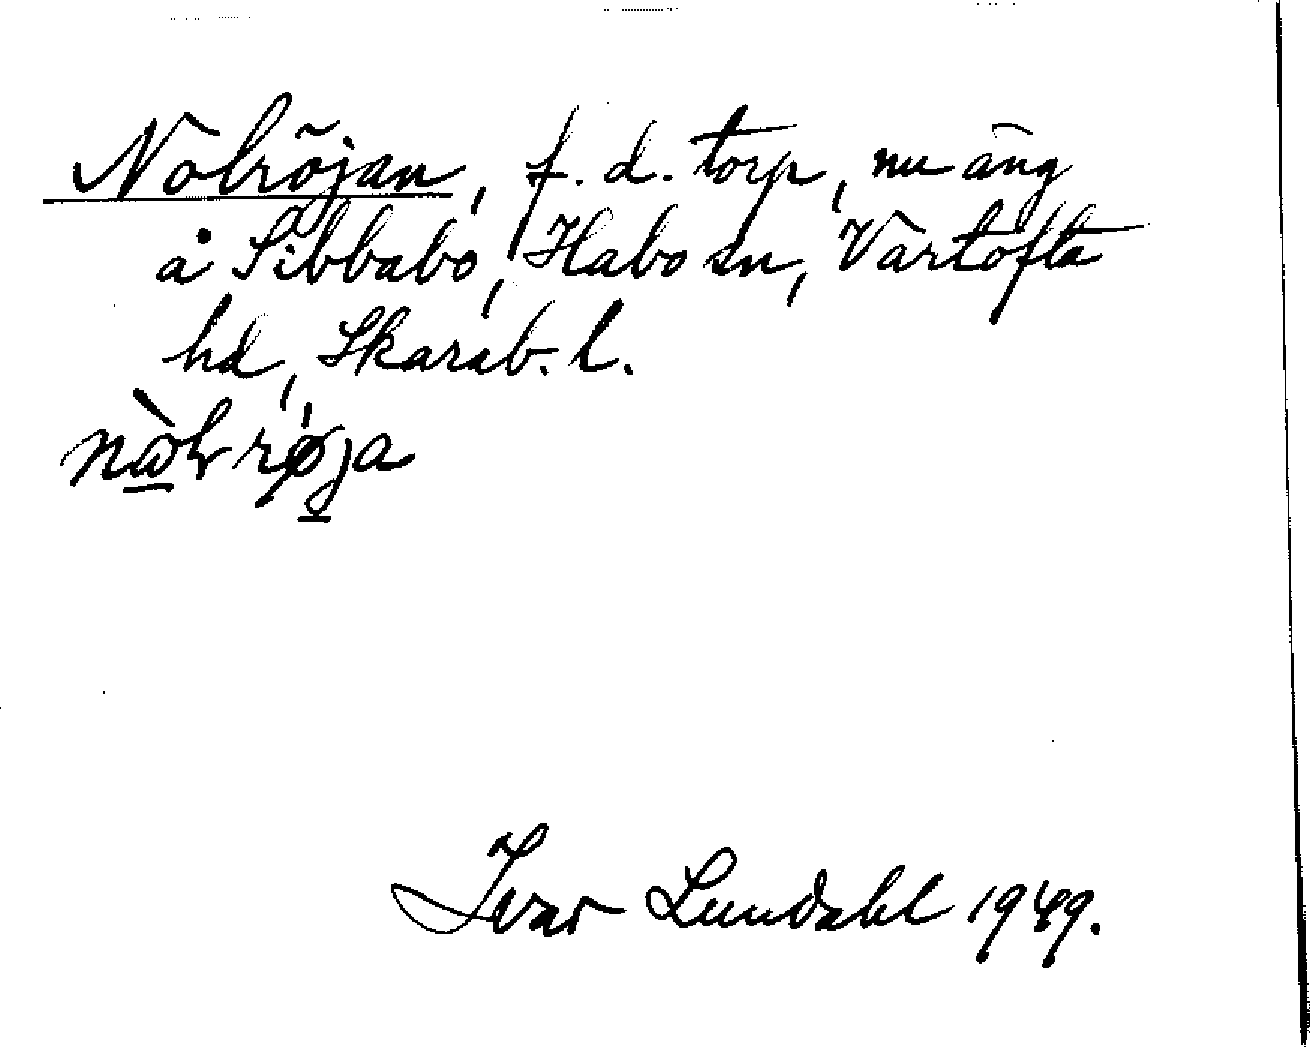 Nolröjan, f. d. torp, nu äng
å Sibbabo, Habo sn, Vartofta
hd, Skarab. l.
Ivar Lundahl 1949.